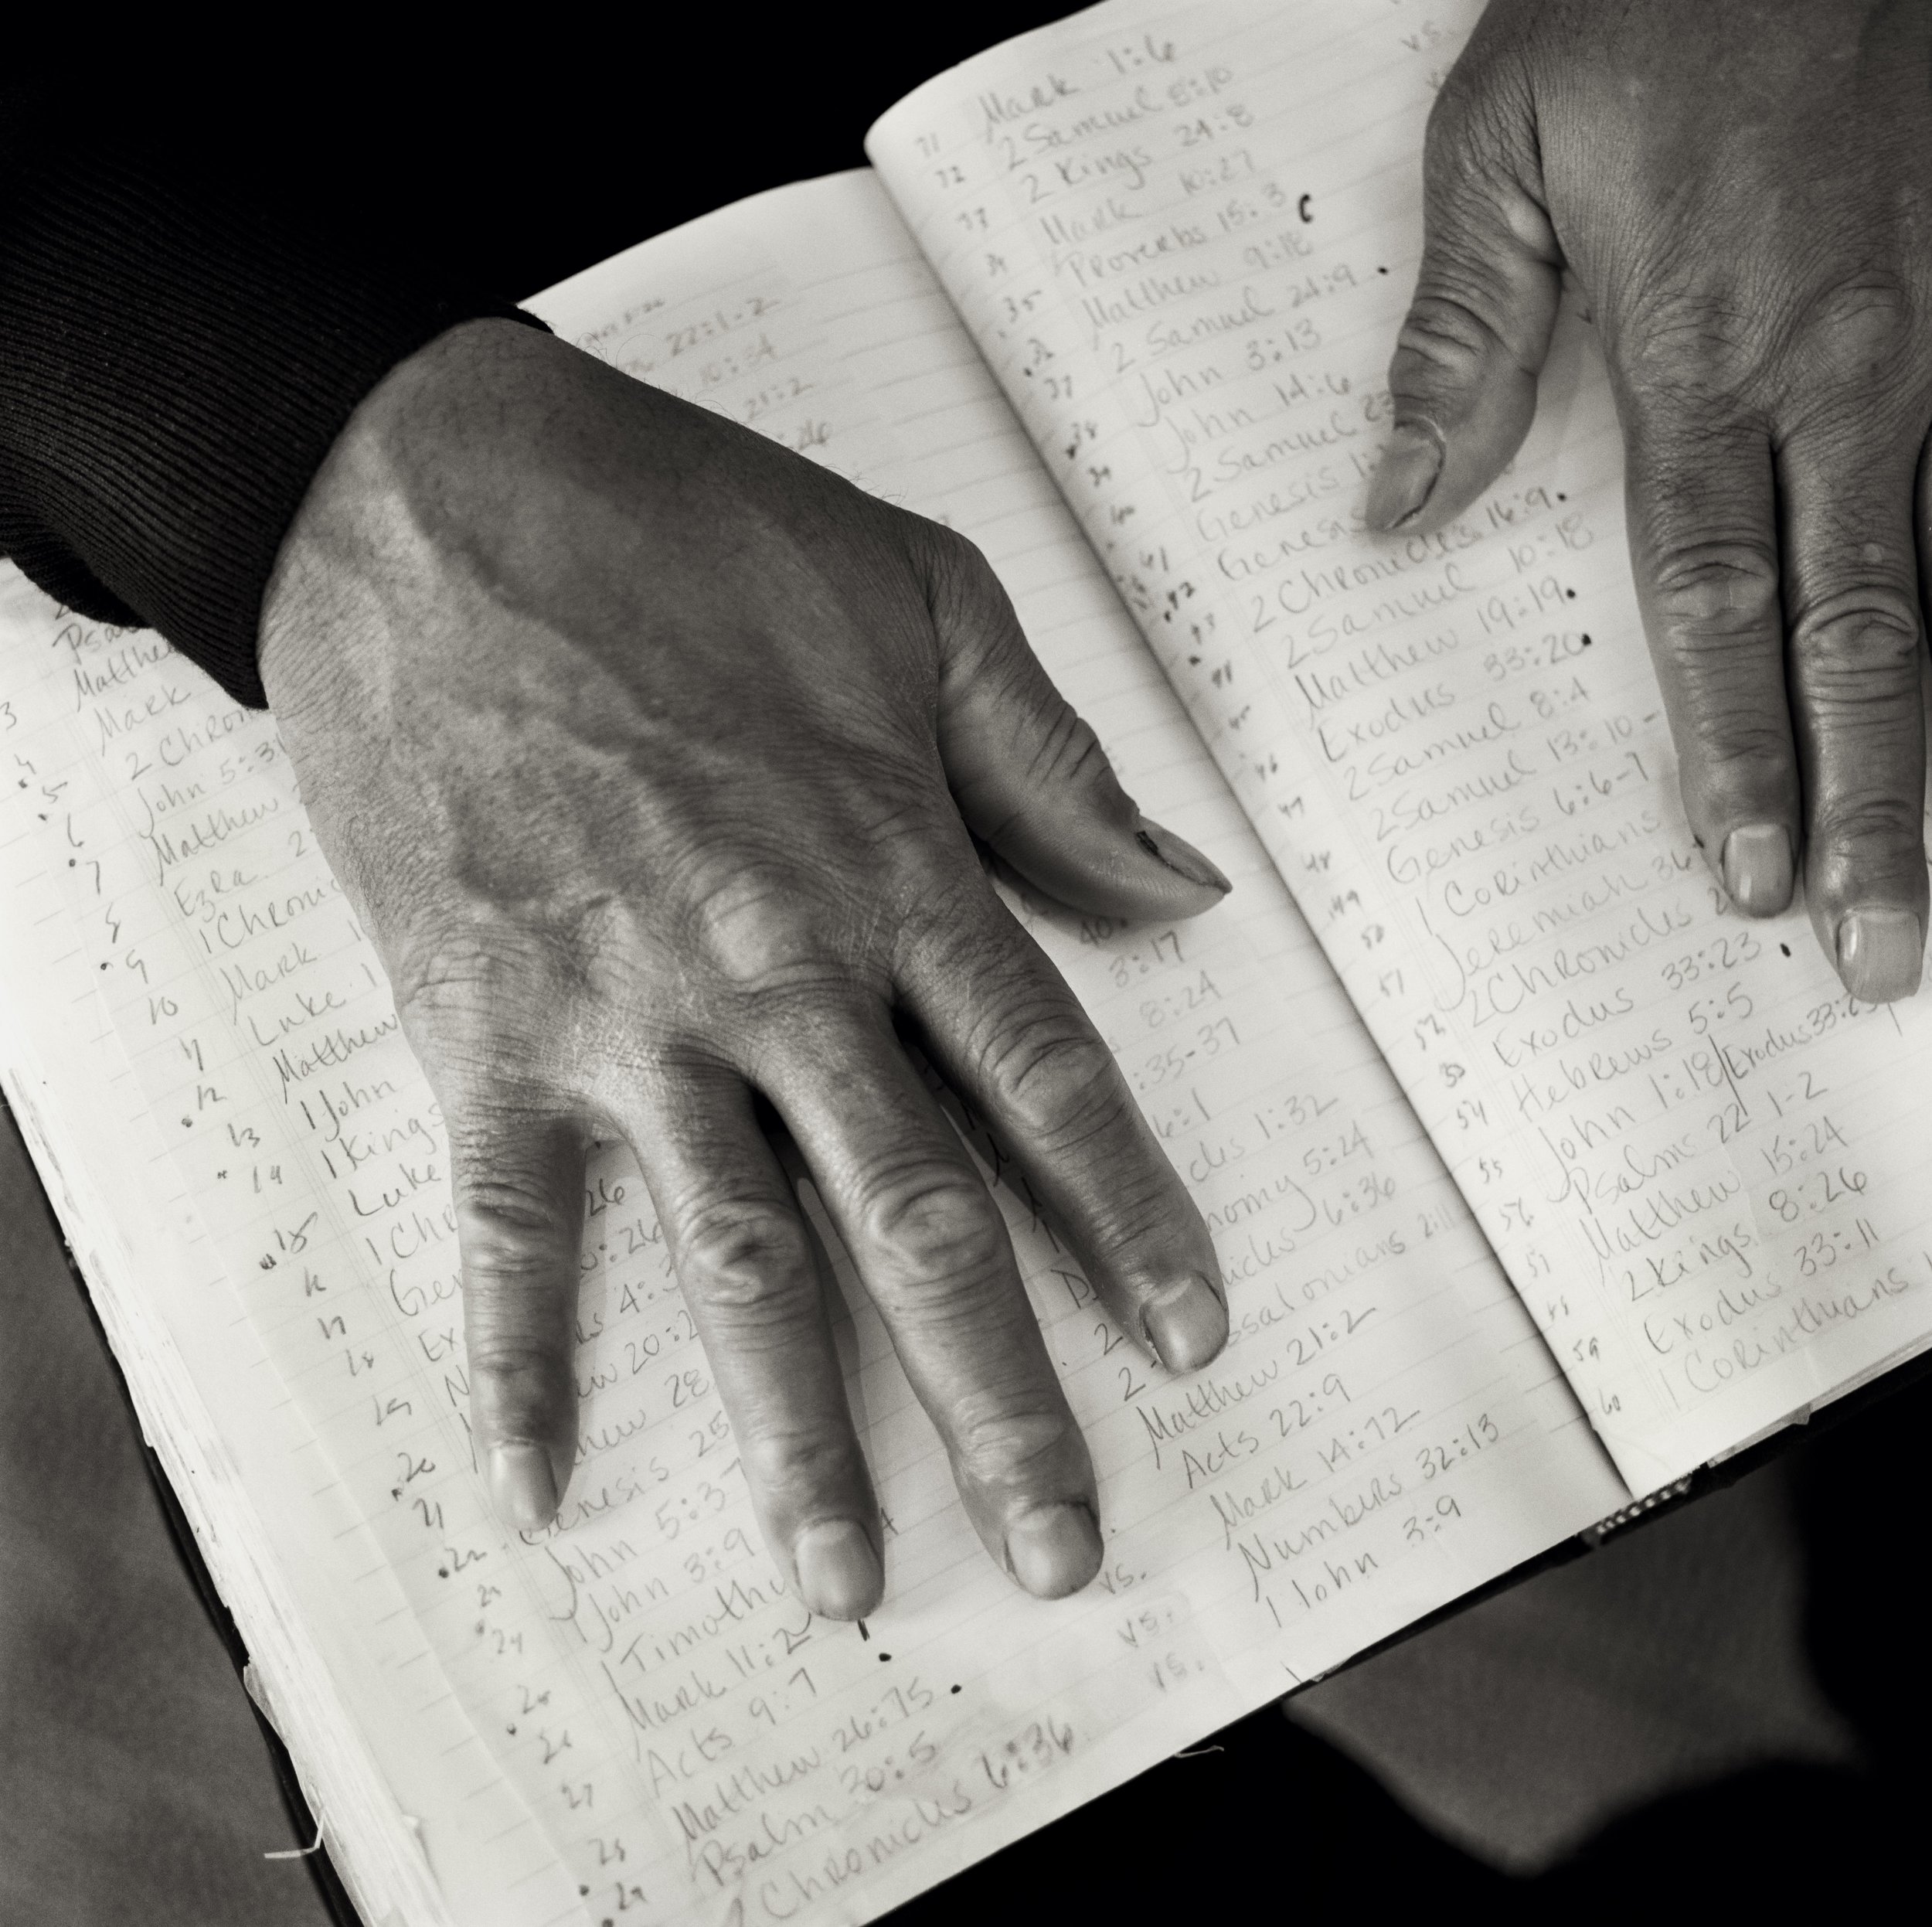 22:1-2
10:34
21:2
Psa
Matthe
Mark
3
2 Chron
4
John 5:31
5
Matthew
6
Ezra
7
1 Chronic
8
Mark
9
Luke
10
Matthew
11
1 John
12
1 Kings
13
Luke
14
1 Chr
26
15
Gen
:26
Ex
4:3
17
N
20:2
18
28
19
Genesis 25
20
John 5:37
21
1 John 3:9
22
1 Timothy
Mark 11:2
24
Acts 9:7
Matthew 26:75
Psalm 30:5
27
2 Chronicles 6:36
28
29
40:
3:17
8:24
:35-37
6:1
cles 1:32
nomy 5:24
icles 6:36
2
ssalonians 2:11
2
Matthew 21:2
Acts 22:9
Mark 14:72
vs. Numbers 32:13
vs. 1 John 3:9
vs.
vs.
Mark 1:6
31 2 Samuel 8:10
32 2 Kings 24:8
33 Mark 10:27
34 Proverbs 15:3
35 Matthew 9:18
36 2 Samuel 24:9
37 John 3:13
38 John 14:6
39 2 Samuel 23
40 Genesis 1:
41 Genesis
42 2 Chronicles 16:9
43 2 Samuel 10:18
44 Matthew 19:19
45 Exodus 33:20
46 2 Samuel 8:4
47 2 Samuel 13:10-
48 Genesis 6:6-7
49 1 Corinthians
50 Jeremiah 36
51 2 Chronicles 2
52 Exodus 33:23
53 Hebrews 5:5
54 John 1:18/Exodus 33:23
55 Psalms 22 1-2
56 Matthew 15:24
57 2 Kings 8:26
58 Exodus 33:11
59 1 Corinthians 1
60